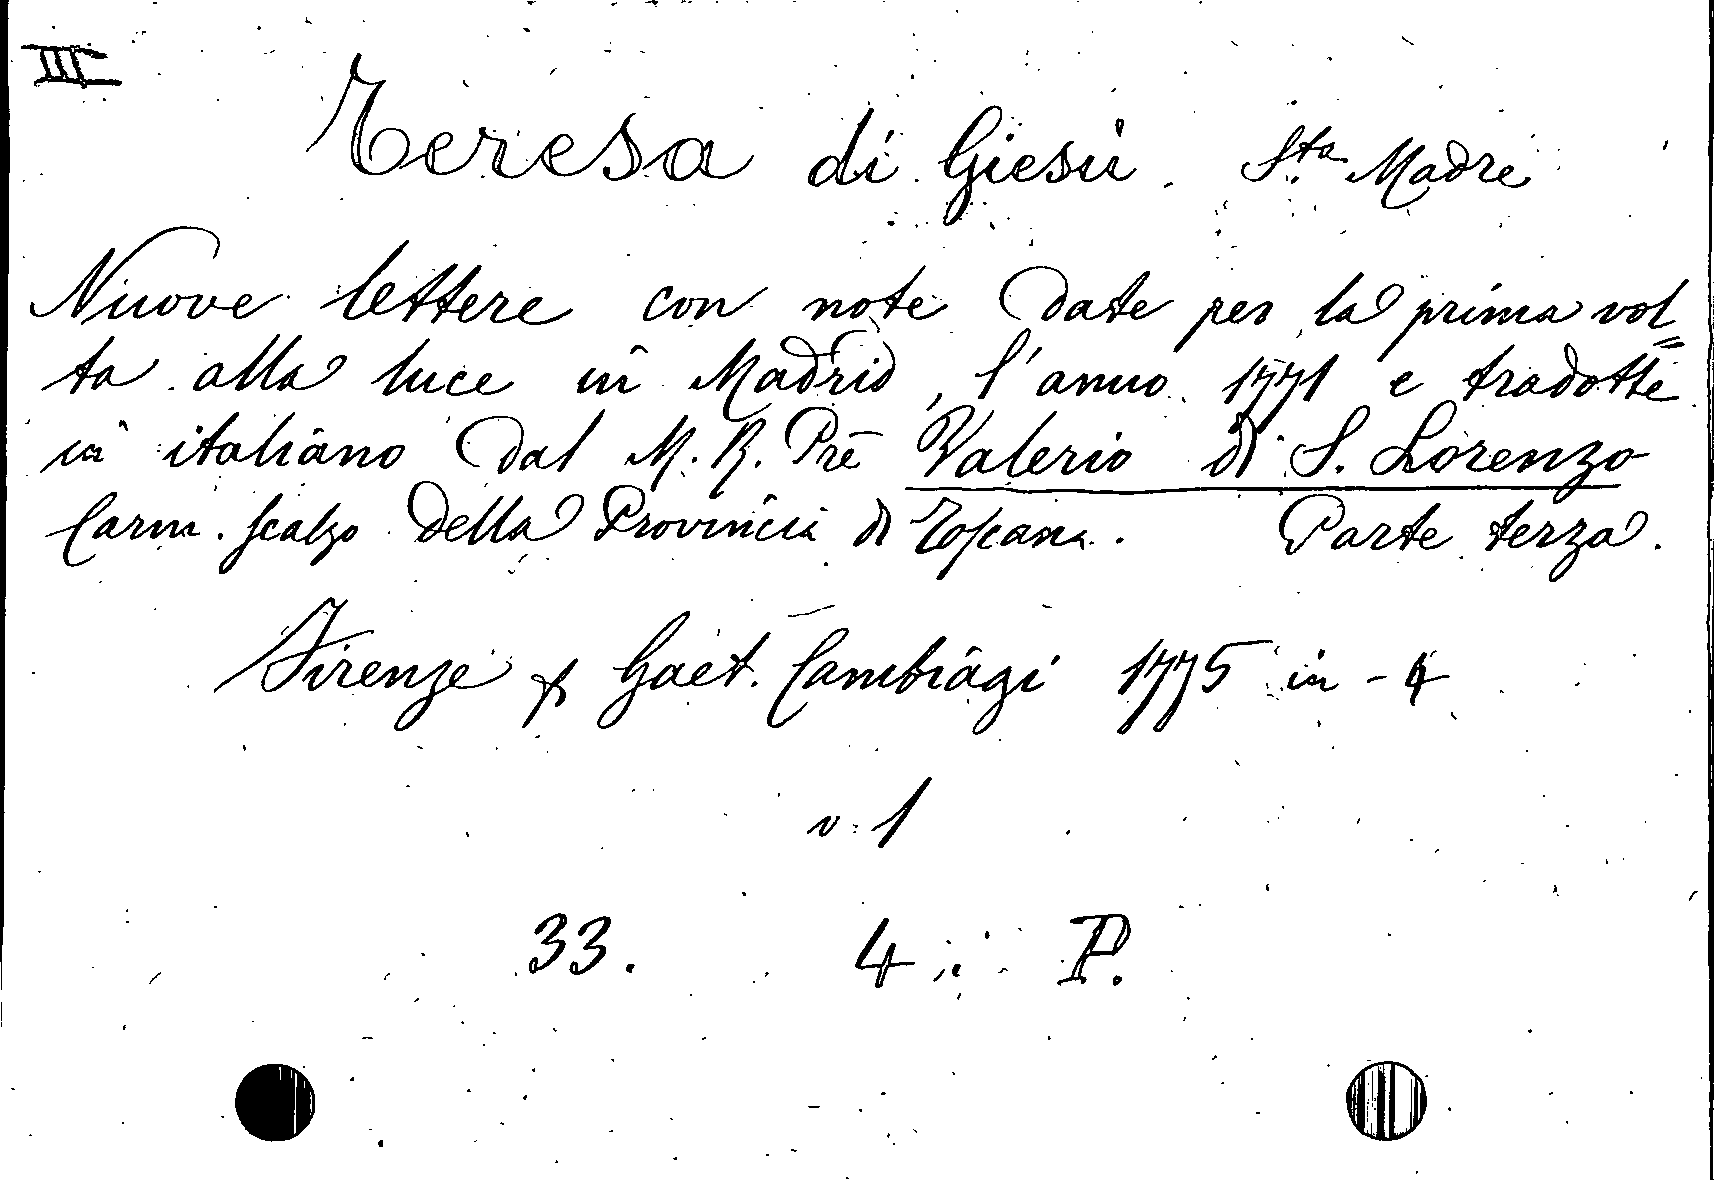 III
Teresa di Giesù. S.ta Madre
Nuove lettere con note date per la prima vol=
ta alla luce in Madrid, l'anno 1771 e tradotte
in italiano dal M. R. Pre Valerio di S. Lorenzo
Carm. scalzo della Provincia di Toscana. Parte terza.
Firenze p Gaet. Cambiagi 1775 in - 4
v. 1
33. 4 : P.